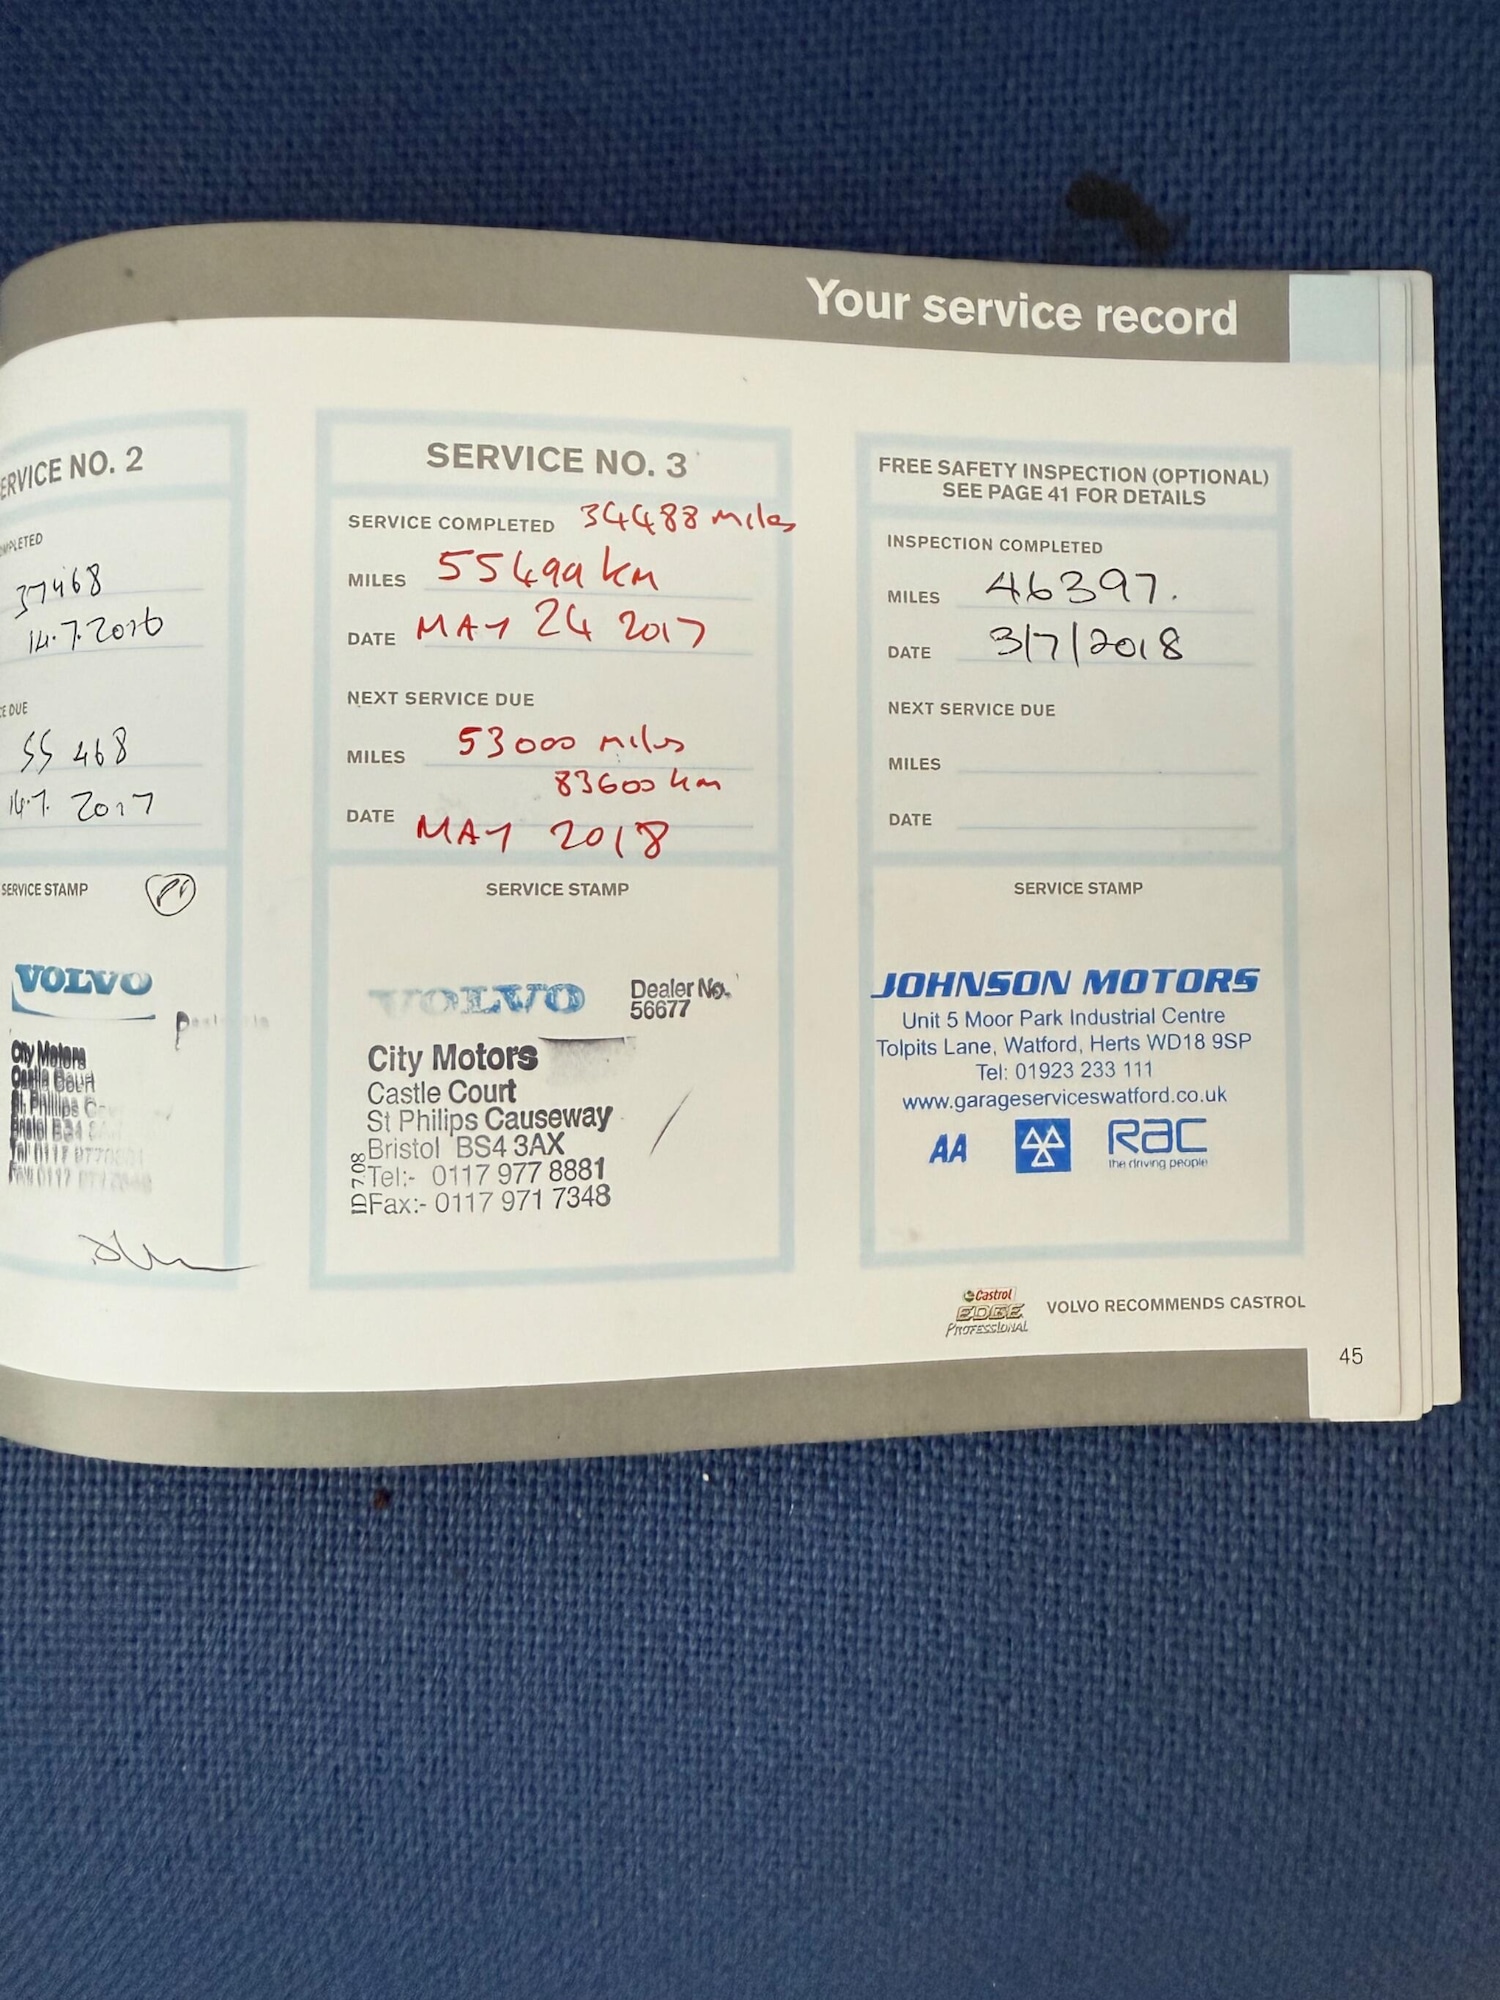 Your service record
ERVICE NO. 2
OMPLETED
37468
14.7.2016
CE DUE
55 468
14.7. 2017
SERVICE STAMP
VOLVO
City Motors
Castle Court
St Phillips
Bristol BS4
SERVICE NO. 3
SERVICE COMPLETED 34488 miles
MILES 55499 km
DATE MAY 24 2017
NEXT SERVICE DUE
MILES 53000 miles
83600 km
DATE MAY 2018
SERVICE STAMP
VOLVO
Dealer No.
56677
City Motors
Castle Court
St Philips Causeway
Bristol BS4 3AX
Tel:- 0117 977 8881
Fax:- 0117 971 7348
ID 708
FREE SAFETY INSPECTION (OPTIONAL)
SEE PAGE 41 FOR DETAILS
INSPECTION COMPLETED
MILES 46397.
DATE 3/7/2018
NEXT SERVICE DUE
MILES
DATE
SERVICE STAMP
JOHNSON MOTORS
Unit 5 Moor Park Industrial Centre
Tolpits Lane, Watford, Herts WD18 9SP
Tel: 01923 233 111
www.garageserviceswatford.co.uk
AA
RAC
the driving people
Castrol
EDGE
PROFESSIONAL
VOLVO RECOMMENDS CASTROL
45